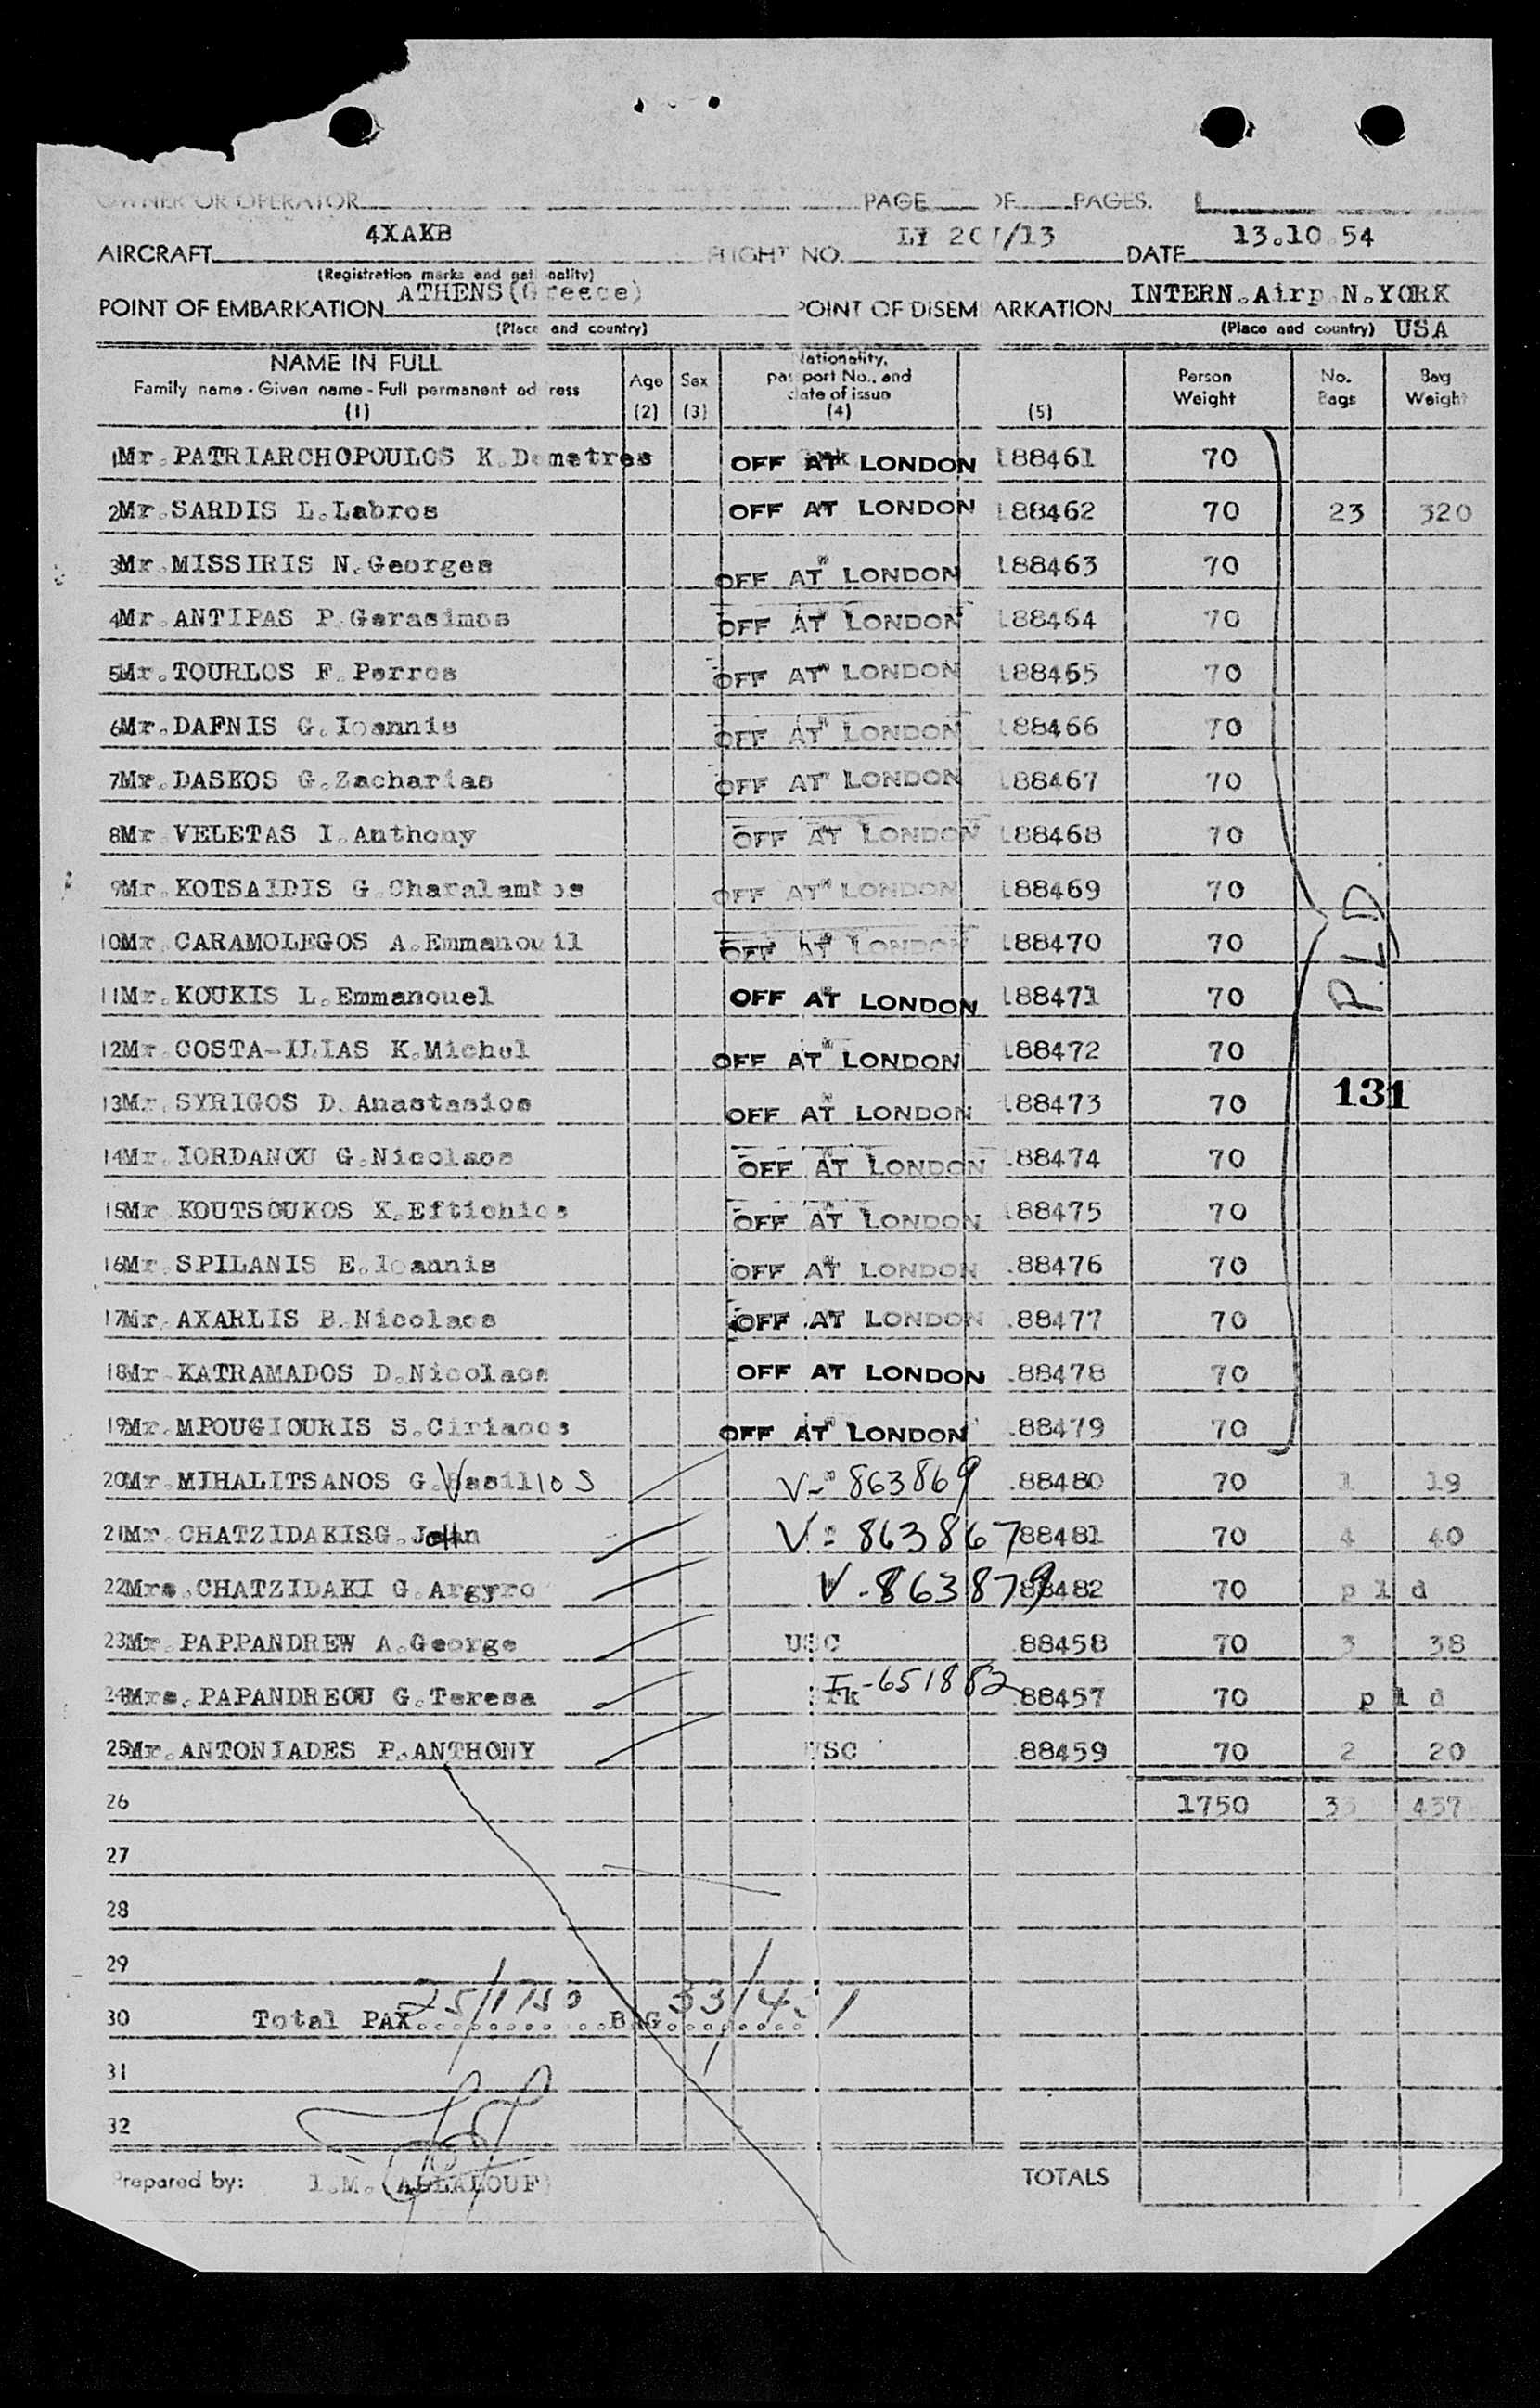 OWNER OR OPERATOR PAGE OF PAGES.
AIRCRAFT 4XAKB FLIGHT NO. LY 207/13 DATE 13.10.54
(Registration marks and nationality)
POINT OF EMBARKATION ATHENS(Greece) POINT OF DISEMBARKATION INTERN.Airp N.YORK
(Place and country) (Place and country) USA
NAME IN FULL Nationality, passport No., and date of issue
Family name - Given name - Full permanent address Age Sex Person Weight No. Bags Bag Weight
(1) (2) (3) (4) (5)
1 Mr. PATRIARCHOPOULOS K.Demetres OFF AT LONDON 188461 70
2 Mr.SARDIS L.Labros OFF AT LONDON 188462 70 23 320
3 Mr MISSIRIS N.Georges " OFF AT LONDON 188463 70
4 Mr ANTIPAS P.Gerasimos " OFF AT LONDON 188464 70
5 Mr.TOURLOS F.Perros " OFF AT LONDON 188465 70
6 Mr.DAFNIS G.Ioannis " OFF AT LONDON 188466 70
7 Mr.DASKOS G.Zacharias " OFF AT LONDON 188467 70
8 Mr VELETAS I.Anthony " OFF AT LONDON 188468 70
9 Mr.KOTSAIDIS G.Charalambos " OFF AT LONDON 188469 70
10 Mr. CARAMOLEGOS A.Emmanouil " OFF AT LONDON 188470 70
11 Mr.KOUKIS L.Emmanouel OFF AT LONDON 188471 70
12 Mr COSTA-ILIAS K.Michel " OFF AT LONDON 188472 70
13 Mr.SYRIGOS D.Anastasios " OFF AT LONDON 188473 70
14 Mr.IORDANOU G.Nicolaos OFF AT LONDON .88474 70
15 Mr KOUTSOUKOS K.Eftichios OFF AT LONDON 188475 70
16 Mr.SPILANIS E.Ioannis OFF AT LONDON .88476 70
17 Mr.AXARLIS B.Nicolaos OFF AT LONDON 88477 70
18 Mr KATRAMADOS D.Nicolaos OFF AT LONDON .88478 70
19 Mr.MPOUGIOURIS S.Ciriacos " OFF AT LONDON .88479 70
P.L.D.
131
20 Mr.MIHALITSANOS G.Vasillios V-863869 .88480 70 1 19
21 Mr.CHATZIDAKISG.John V-863867 88481 70 4 40
22 Mrs.CHATZIDAKI G.Argyro V-863879 88482 70 p l d
23 Mr.PAPPANDREW A.George USC .88458 70 3 38
24 Mrs.PAPANDREOU G.Teresa I-651882 .88457 70 p l d
25 Mr.ANTONIADES P.ANTHONY USC .88459 70 2 20
26 1750 33 437
27
28
29
30 Total PAX 25/1750 BAG 33/437
31
32
Prepared by: (ALLALOUF) TOTALS